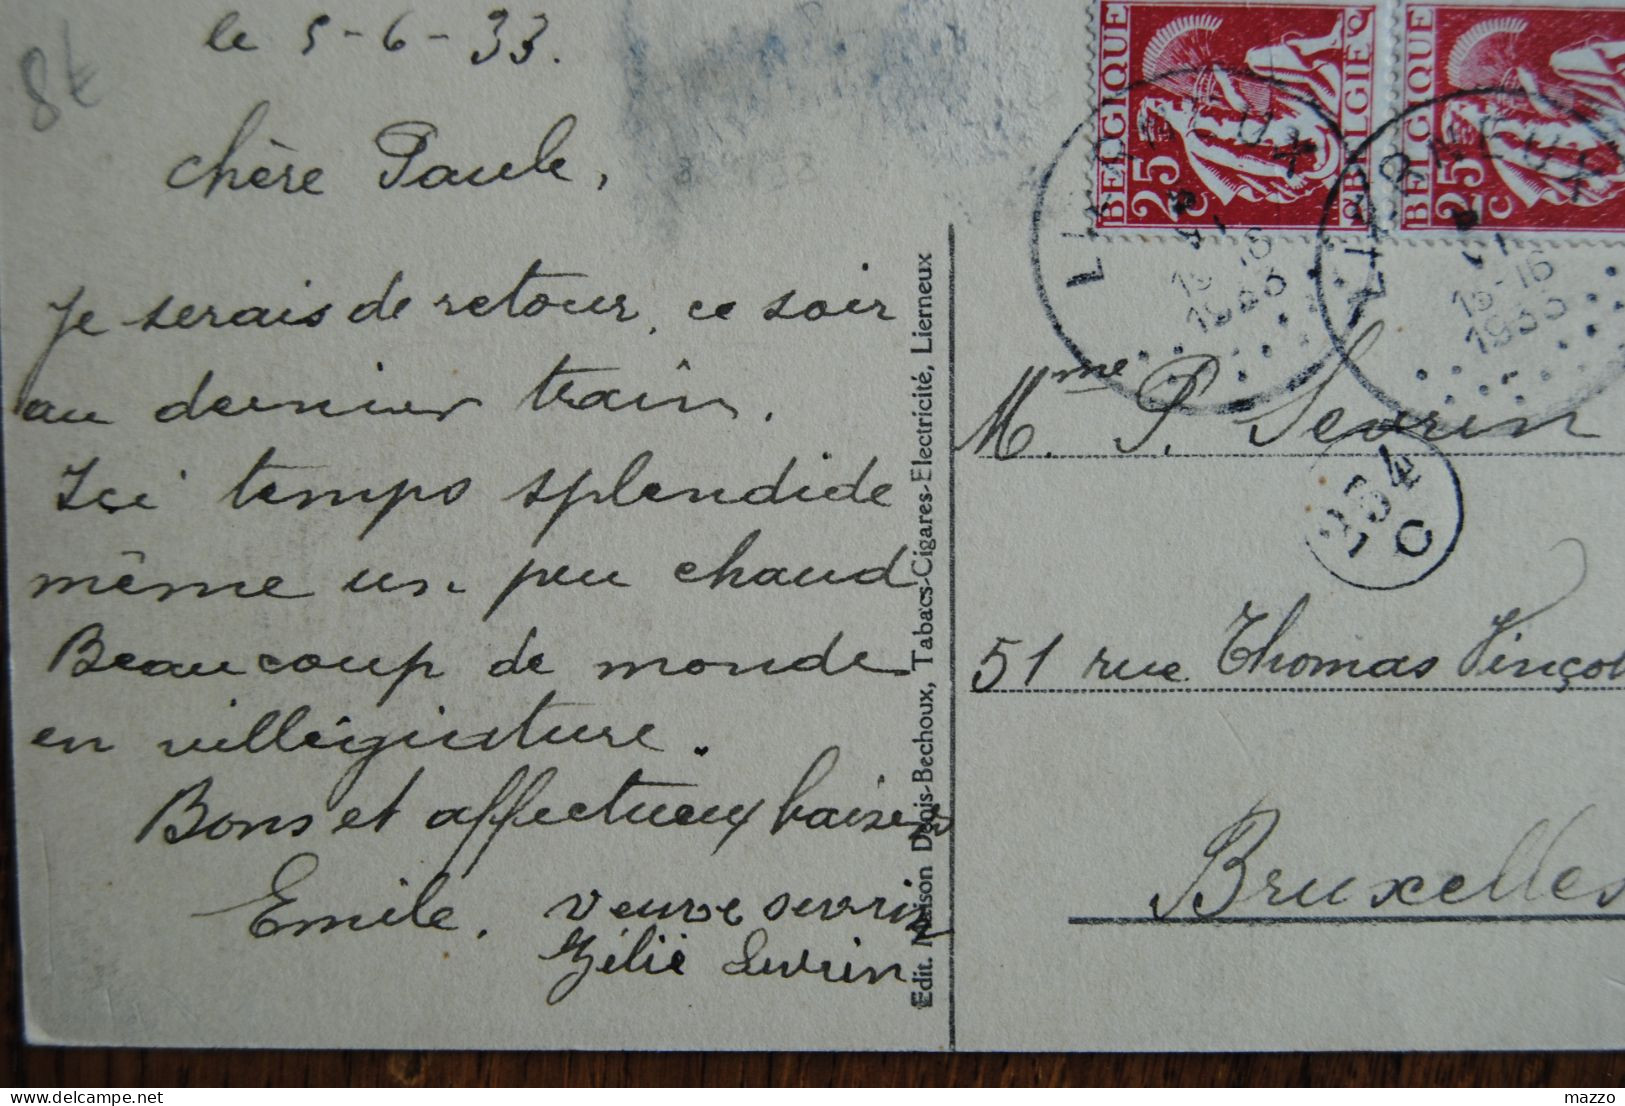 8€
le 5-6-33.
Chère Paule,
Je serais de retour, ce soir
au dernier train.
Ici temps splendide
même un peu chaud
Beaucoup de monde
en villégiature.
Bons et affectueux baisers
Emile. Veuve Sevrin
Zélie Sevrin
Edit. Maison Denis-Bechoux, Tabacs-Cigares-Electricité, Lierneux
BELGIQUE 25c BELGIE
BELGIQUE 25c BELGIË
LIERNEUX
15-16
1933
LIERNEUX
15-16
1933
Mme. P. Sevrin
51 rue Thomas Vinçot
Bruxelles
mazzo